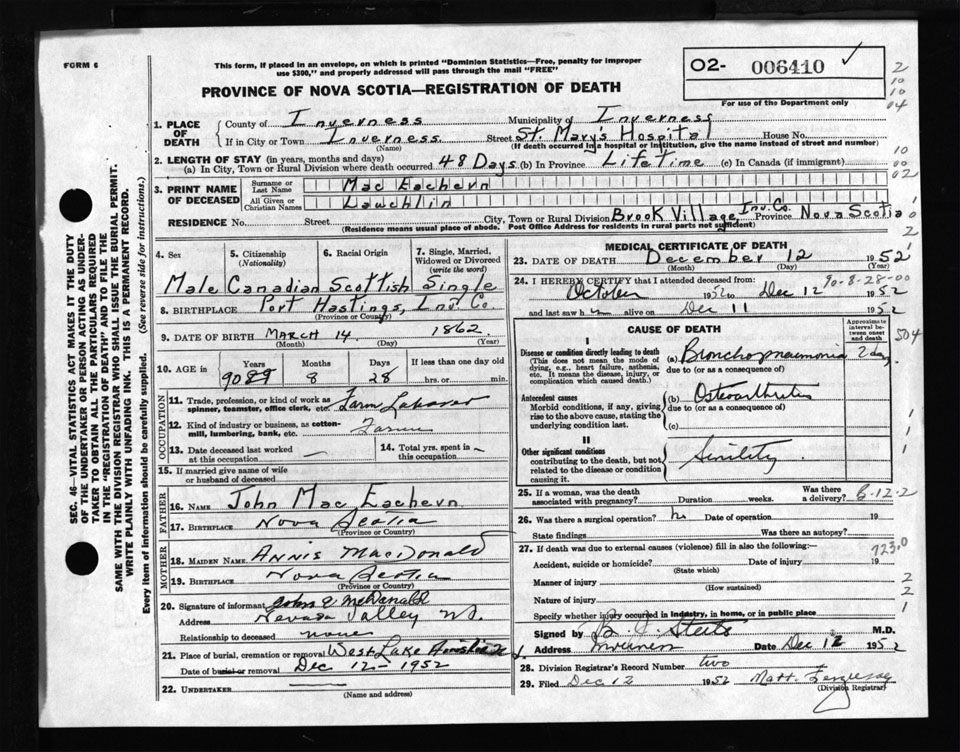 FORM 6
This form, if placed in an envelope, on which is printed "Dominion Statistics—Free, penalty for improper
use $300," and properly addressed will pass through the mail "FREE"
O2- 006410 ✓
For use of the Department only
2
10
10
04
10
00
02
PROVINCE OF NOVA SCOTIA—REGISTRATION OF DEATH
1. PLACE OF DEATH
County of Inverness Municipality of Inverness
If in City or Town Inverness. Street St. Mary's Hospital House No.
(Name) (If death occurred in a hospital or institution, give the name instead of street and number)
2. LENGTH OF STAY (in years, months and days)
(a) In City, Town or Rural Division where death occurred 48 Days (b) In Province Lifetime (c) In Canada (if immigrant)
3. PRINT NAME OF DECEASED
Surname or Last Name Mac Eachern
All Given or Christian Names Lauchlin
RESIDENCE No. Street City, Town or Rural Division Brook Village, Inv. Co. Province Nova Scotia
(Residence means usual place of abode. Post Office Address for residents in rural parts not sufficient)
SEC. 46—VITAL STATISTICS ACT MAKES IT THE DUTY
OF THE UNDERTAKER OR PERSON ACTING AS UNDER-
TAKER TO OBTAIN ALL THE PARTICULARS REQUIRED
IN THE "REGISTRATION OF DEATH" AND TO FILE THE
SAME WITH THE DIVISION REGISTRAR WHO SHALL ISSUE THE BURIAL PERMIT.
WRITE PLAINLY WITH UNFADING INK. THIS IS A PERMANENT RECORD.
Every item of information should be carefully supplied. (See reverse side for instructions.)
4. Sex Male
5. Citizenship (Nationality) Canadian
6. Racial Origin Scottish
7. Single, Married, Widowed or Divorced (write the word) Single
8. BIRTHPLACE Port Hastings, Inv. Co.
(Province or Country)
9. DATE OF BIRTH MARCH 14 1862
(Month) (Day) (Year)
10. AGE in Years Months Days If less than one day old
90 89 8 28 hrs. or min.
OCCUPATION
11. Trade, profession, or kind of work as spinner, teamster, office clerk, etc. Farm Laborer
12. Kind of industry or business, as cotton-mill, lumbering, bank, etc. Farm
13. Date deceased last worked at this occupation —
14. Total yrs. spent in this occupation —
15. If married give name of wife or husband of deceased
FATHER
16. NAME John Mac Eachern
17. BIRTHPLACE Nova Scotia
(Province or Country)
MOTHER
18. MAIDEN NAME ANNIS MacDonald
19. BIRTHPLACE Nova Scotia
(Province or Country)
20. Signature of informant John McDonald
Address Nevada Valley N.S.
Relationship to deceased none
21. Place of burial, cremation or removal West Lake Ainslie
Date of burial or removal Dec 12 - 1952
22. UNDERTAKER
(Name and address)
MEDICAL CERTIFICATE OF DEATH
23. DATE OF DEATH December 12 1952
(Month) (Day) (Year)
24. I HEREBY CERTIFY that I attended deceased from: 90-8-28-00
October 1952 to Dec 12 1952
and last saw h m alive on Dec 11 1952
CAUSE OF DEATH
Approximate interval between onset and death
I
Disease or condition directly leading to death
(This does not mean the mode of dying, e.g., heart failure, asthenia, etc. It means the disease, injury, or complication which caused death.)
(a) Bronchopneumonia 2 day
due to (or as a consequence of)
504
Antecedent causes
Morbid conditions, if any, giving rise to the above cause, stating the underlying condition last.
(b) Osteoarthritis
due to (or as a consequence of)
(c)
II
Other significant conditions
contributing to the death, but not related to the disease or condition causing it.
Senility
25. If a woman, was the death associated with pregnancy? Duration weeks. Was there a delivery? 6-12-2
26. Was there a surgical operation? no Date of operation 19
State findings Was there an autopsy?
27. If death was due to external causes (violence) fill in also the following:— 723.0
Accident, suicide or homicide? Date of injury 19
(State which)
Manner of injury
(How sustained)
Nature of injury
Specify whether injury occurred in industry, in home, or in public place
2
2
1
Signed by M.D.
Address Inverness Date Dec 12 1952
28. Division Registrar's Record Number two
29. Filed Dec 12 1952 Matt. Ferguson
(Division Registrar)